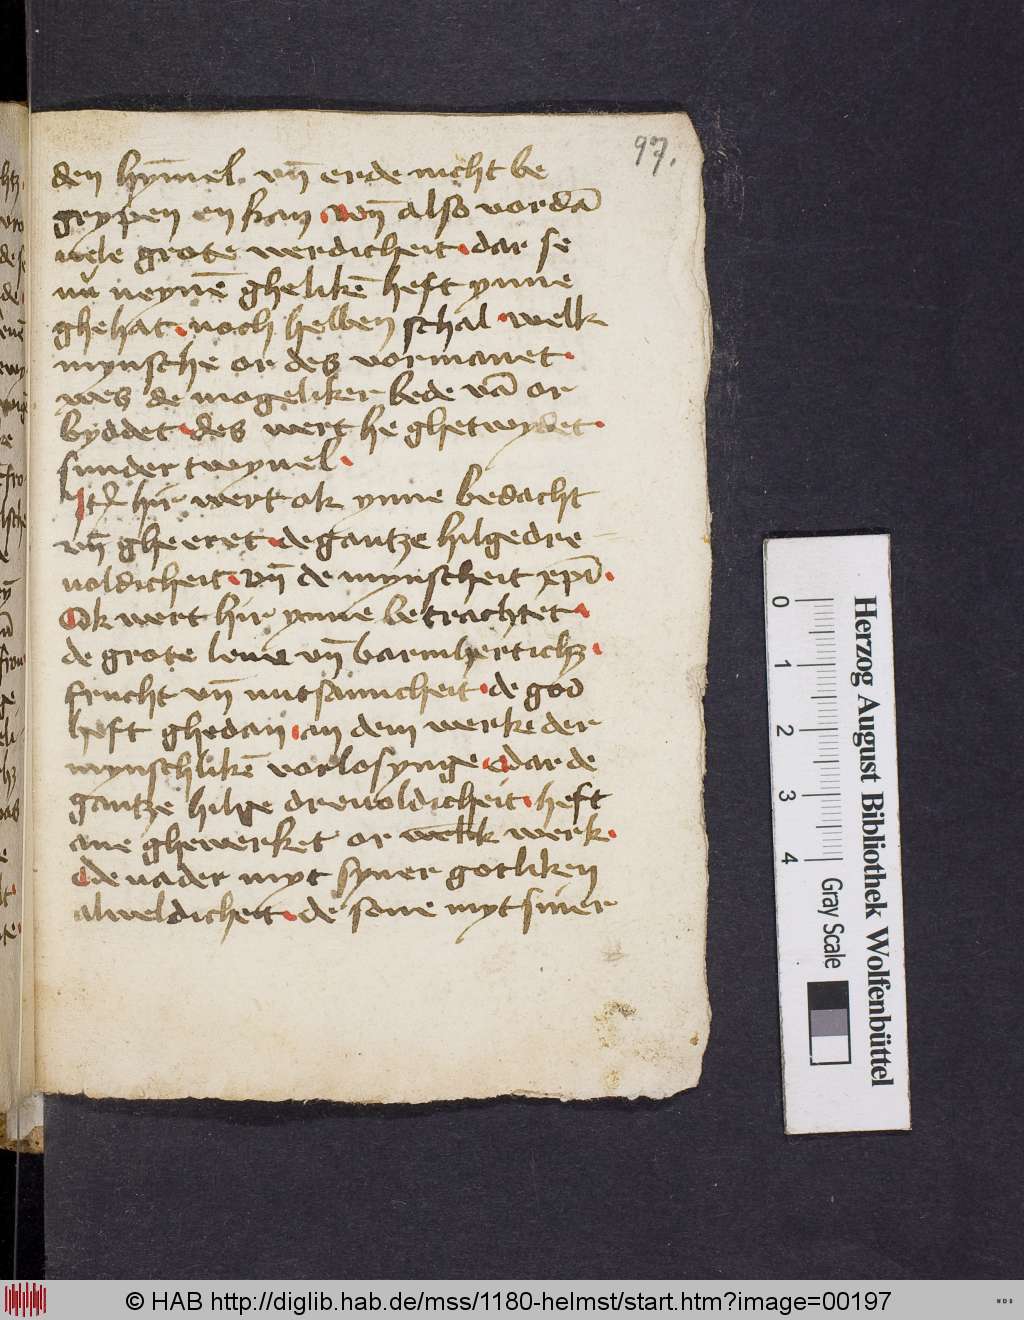 97.
den hȳmel. vn̄ erde nicht be
grypen en kan. vn̄ also vordā
vele grote werdicheit. dar se
nu neynē ghelikē heft ynne
ghehat. noch hebben schal. welk
mynsche or des vormanet.
wes de mogeliker bede vā or
byddet. des wert he ghetwydet.
sunder twyuel.
It̄ hir wert ok ynne bedacht
vn̄ gheeret. de gantze hilge dre
uoldicheit. vn̄ de mynscheit xp̄i.
Ok wert hir ynne betrachtet.
de grote leue vn̄ barmhertichꝫ.
frucht vn̄ nutsamicheit. de god
heft ghedan. an dem werke der
mynschlikē vorlosynge. dar de
gantze hilge dreuoldicheit. heft
ane ghewerket or welk werk.
de vader myt syner gotliken
alweldicheit. de sone myt siner
0 1 2 3 4
Gray Scale
Herzog August Bibliothek Wolfenbüttel
© HAB http://diglib.hab.de/mss/1180-helmst/start.htm?image=00197